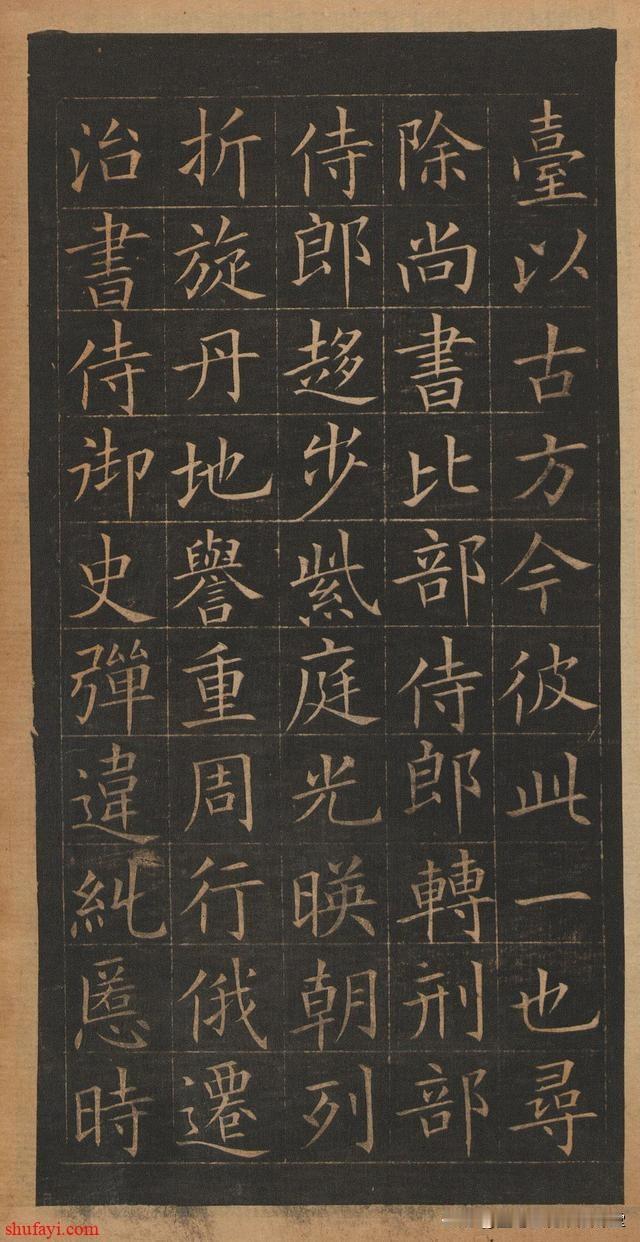 臺以古方今彼此一也尋
除尚書比部侍郎轉刑部
侍郎趍步紫庭光暎朝列
折旋丹地譽重周行俄遷
治書侍御史彈違糺慝時
shufayi.com